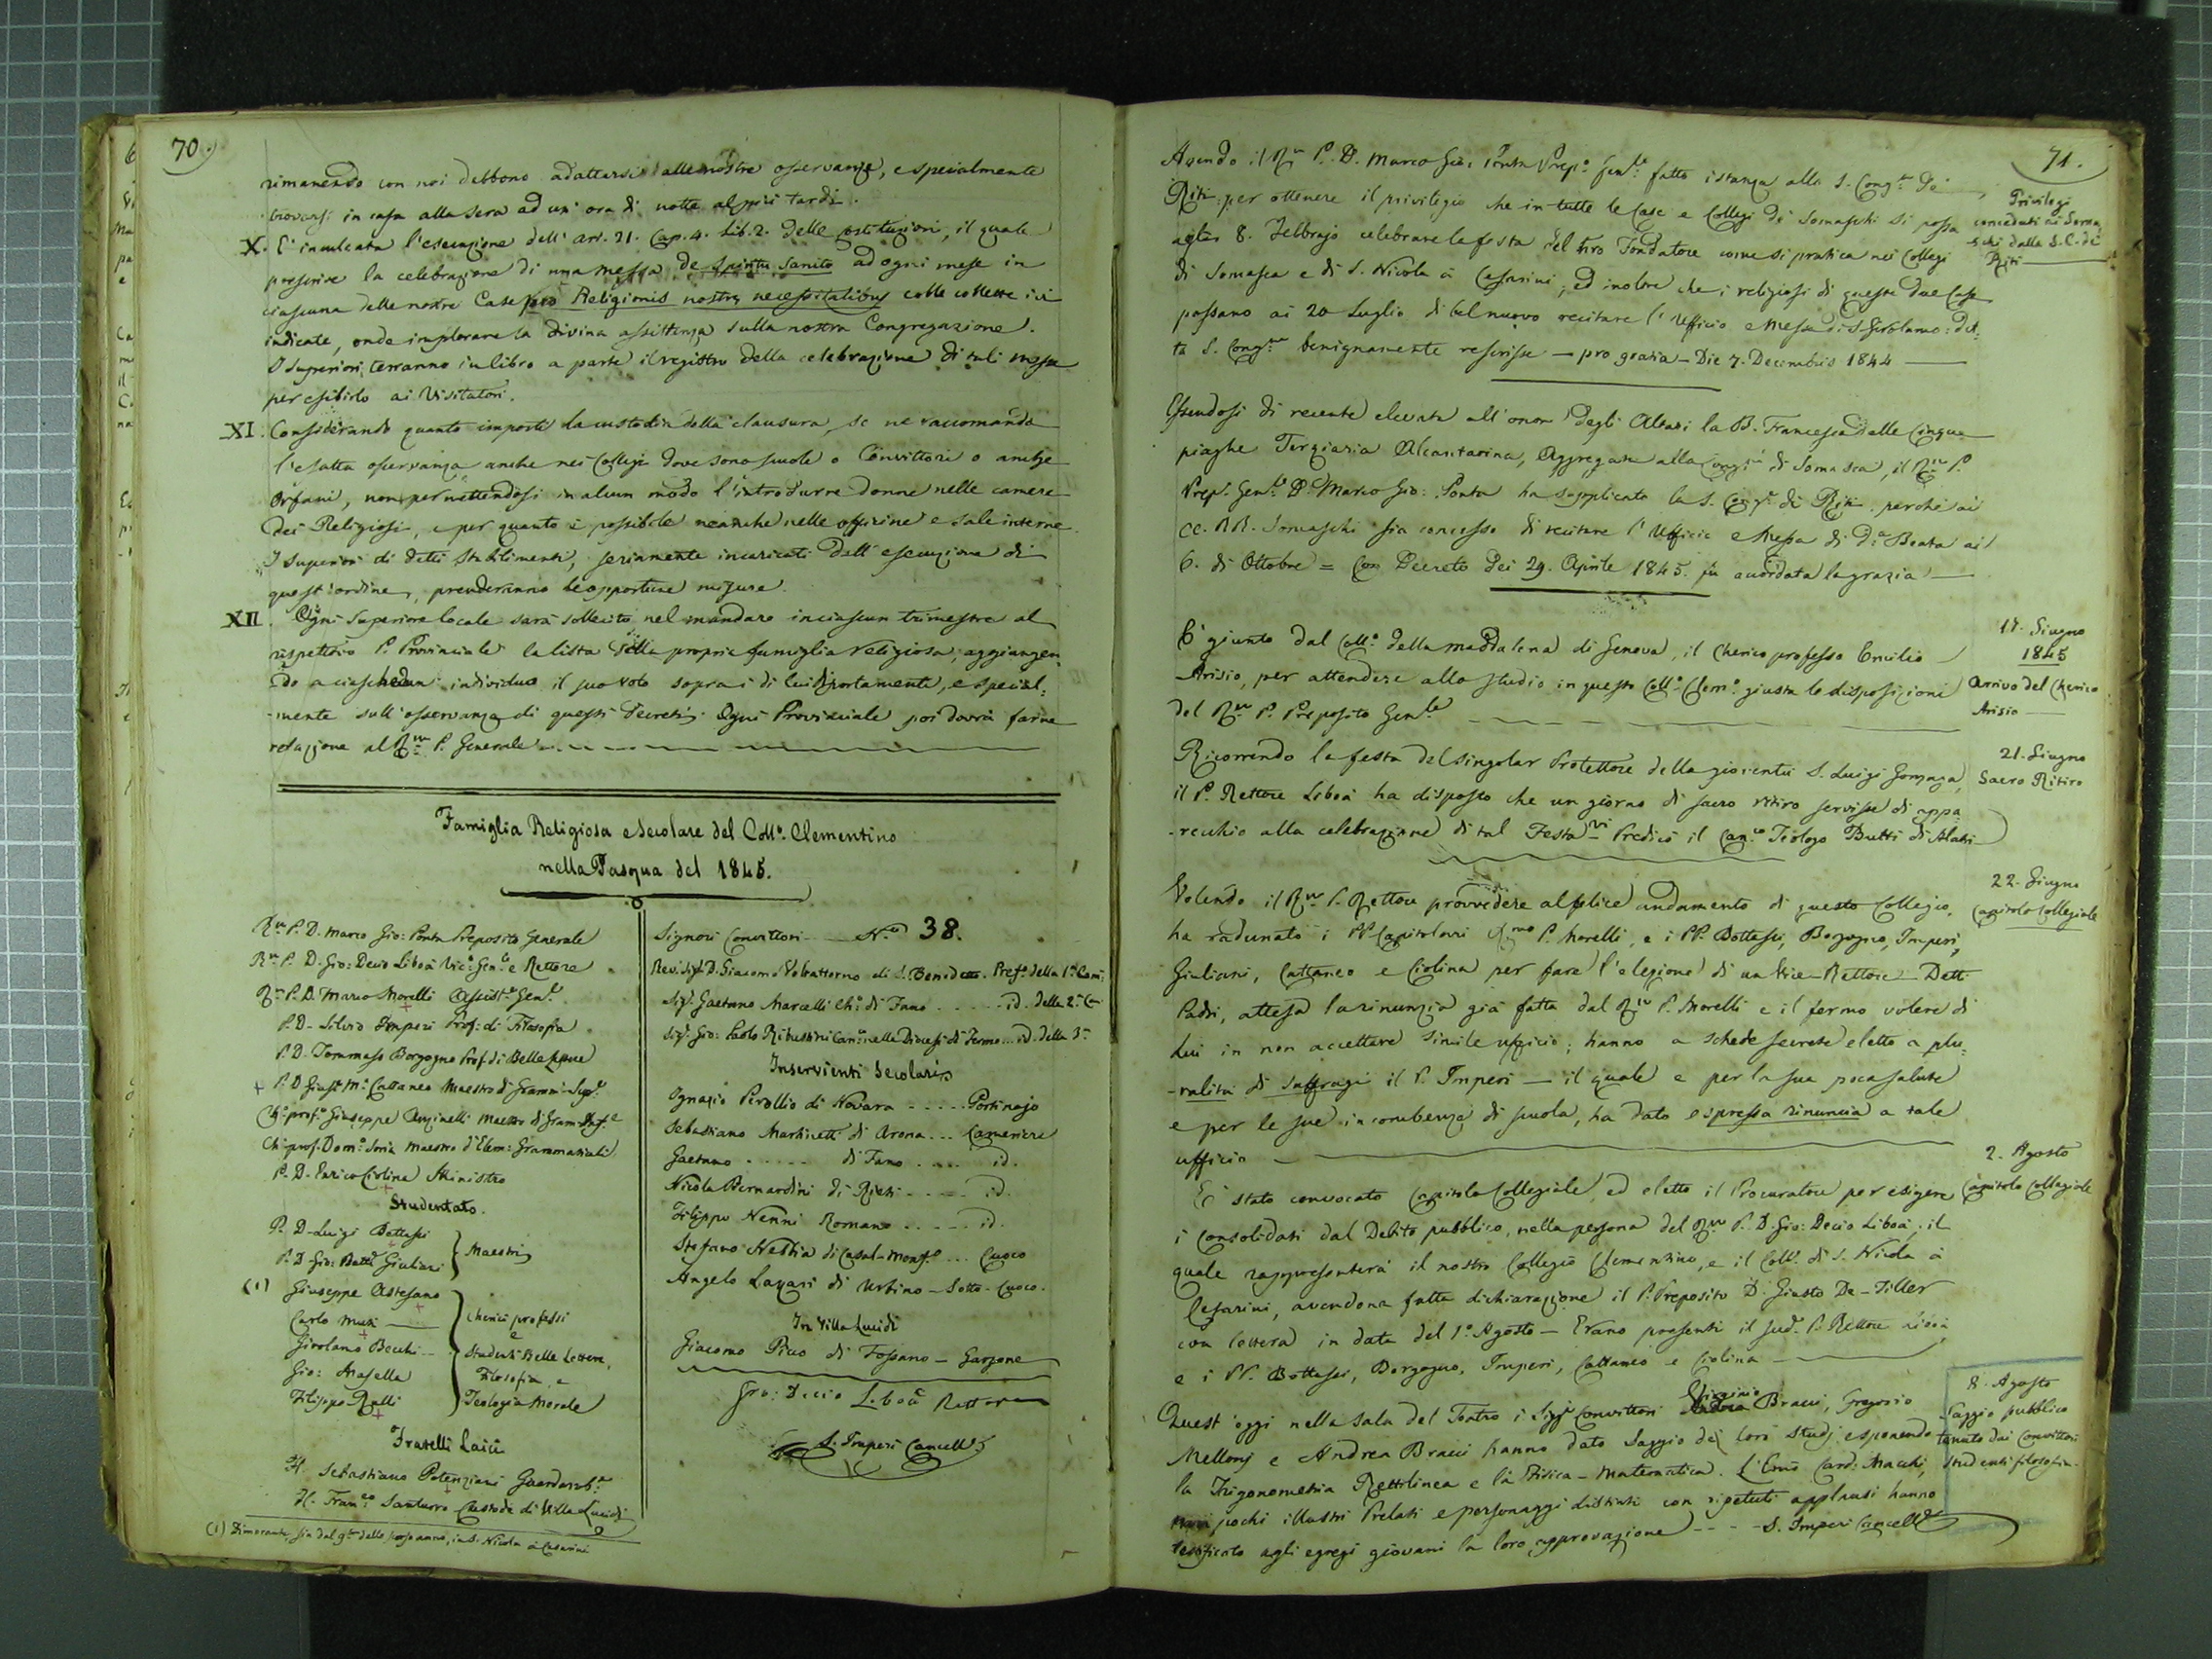 70.
rimanendo con noi debbono adattarsi alle nostre osservanze, e specialmente
trovarsi in casa alla sera ad un' ora di notte al più tardi.
X. È inculcata l'esecuzione dell' art. 21. Cap. 4. Lib. 2. delle Costituzioni, il quale
prescrive la celebrazione di una messa de Spiritu Sancto ad ogni mese in
ciascuna delle nostre Case pro Religionis nostræ necessitatibus colle collette ivi
indicate, onde implorare la divina assistenza sulla nostra Congregazione.
I Superiori terranno in libro a parte il registro della celebrazione di tali messe
per esibirlo ai Visitatori.
XI. Considerando quanto importi la custodia della clausura, se ne raccomanda
l'esatta osservanza anche nei Collegi dove sono scuole o Convittori o anche
Orfani, non permettendosi in alcun modo l'introdurre donne nelle camere
dei Religiosi, e per quanto è possibile neanche nelle officine e sale interne.
I Superiori di detti stabilimenti, seriamente incaricati dell' esecuzione di
quest' ordine, prenderanno le opportune misure.
XII. Ogni Superiore locale sarà sollecito nel mandare in ciascun trimestre al
rispettivo P. Provinciale la lista della propria famiglia religiosa, aggiungen-
do a ciaschedun individuo il suo voto sopra i di lui diportamenti, e special-
-mente sull'osservanza di questi decreti. Ogni Provinciale poi dovrà farne
relazione al Rmo P. Generale
Famiglia Religiosa e Secolare del Coll.o Clementino
nella Pasqua del 1845.
Rmo P. D. Marco Gio: Ponta Preposito Generale
Rmo P. D. Gio: Decio Libois Vic.o Gen.le e Rettore
Rmo P. D. Marco Morelli Assist.e Gen.le
P. D. Silvio Imperi Prof. di Filosofia
P. D. Tommaso Borgogno Prof. di Belle Lettere
+ P. D. Giust. M.a Cattaneo Maestro di Gramm. Sup.e
Ch.o prof.o Giuseppe Anzinelli Maestro di Gram. Inf.e
Ch. prof. Dom.o Soria Maestro d'Elem: Grammaticali
P. D. Enrico Ciolina Ministro
Studentato.
P. D. Luigi Bottassi
P. D. Gio: Batt.a Giuliani
Maestri
(1) Giuseppe Astesano
Carlo Muti
Girolamo Bechi
Gio: Masella
Filippo Ralli
Cherici professi
e
Studenti Belle Lettere,
Filosofia, e
Teologia Morale
Fratelli Laici
Fr. Sebastiano Potenziani Guardarob.a
Fr. Fran.co Santurro Custode di Villa Lucidi
(1) Dimorante, fin dal 9bre dello scorso anno, in S. Nicola a Cesarini
Signori Convittori N.o 38.
Rev. Sig. D. Giacomo Voltattorno di S. Benedetto. Pref.o della 1.a Cam.
Sig. Gaetano Marcelli Ch.o di Fano . . . . . id. della 2.a C
Sig. Gio: Paolo Ribustini Can.o nella Diocesi di Fermo . . . id. della 3.a
Inservienti Secolari
Ignazio Perollio di Novara . . . . . Portinajo
Sebastiano Martinetti di Arona . . . Cameriere
Gaetano . . . . . di Fano . . . . id.
Nicola Bernardini di Rieti . . . . . id.
Filippo Nenni Romano . . . . . id.
Stefano Nattia di Casal-Monf.o . . . Cuoco
Angelo Lazzari di Urbino – Sotto-Cuoco.
In Villa Lucidi
Giacomo Pico di Fossano – Garzone
Gio: Decio Libois Rettore
S. Imperi Cancell.e
71.
Avendo il Rmo P. D. Marco Gio: Ponta Prep.o Gen.le fatta istanza alla S. Cong.ne de'
Riti per ottenere il privilegio che in tutte le Case e Collegi de' Somaschi si possa
agli 8. Febbrajo celebrare la festa del Sto Fondatore come si pratica nei Collegi
di Somasca e di S. Nicola a Cesarini, ed inoltre che i religiosi di queste due Case
possano ai 20 Luglio di bel nuovo recitare l' Ufficio e Messa di S. Girolamo: det-
ta S. Cong.ne benignamente rescrisse – pro gratia – Die 7. Decembris 1844
Privilegi
conceduti ai Soma
schi dalla S. C. de
Riti
Essendosi di recente elevata all'onor degli Altari la B. Francesca delle Cinque
piaghe Terziaria Alcantarina, Aggregata alla Cong.ne di Somasca, il Rmo P.
Prep. Gen.le D. Marco Gio: Ponta ha supplicato la S. Cong.e di Riti perchè ai
CC. RR. Somaschi sia concesso di recitare l' Ufficio e Messa di d.a Beata ai
6. di Ottobre = Con Decreto dei 29. Aprile 1845. fu accordata la grazia
17. Giugno
1845
Arrivo del Cherico
Arisio
È giunto dal Coll.o della Maddalena di Genova, il Cherico professo Emilio
Arisio, per attendere allo studio in questo Coll.o Clem.o giusta le disposizioni
del Rmo P. Preposito Gen.le
21. Giugno
Sacro Ritiro
Ricorrendo la festa del singolar Protettore della gioventù S. Luigi Gonzaga,
il P. Rettore Libois ha disposto che un giorno di sacro ritiro servisse di appa
-recchio alla celebrazione di tal Festa. Vi Predicò il Can.co Teologo Butti di Alatri
22. Giugno
Capitolo Collegiale
Volendo il Rmo P. Rettore provvedere al felice andamento di questo Collegio,
ha radunato i PP. Capitolari Rmo P. Morelli, e i PP. Bottassi, Borgogno, Imperi,
Giuliani, Cattaneo e Ciolina per fare l'elezione di un Vice-Rettore. Detti
Padri, attesa la rinunzia già fatta dal Rmo P. Morelli e il fermo volere di
lui in non accettare simile ufficio; hanno a schede secrete eletto a plu-
-ralità di suffragi il P. Imperi – il quale e per la sua poca salute
e per le sue incombenze di scuola, ha dato espressa rinuncia a tale
ufficio
2. Agosto
Capitolo Collegiale
È stato convocato Capitolo Collegiale, ed eletto il Procuratore per esigere
i Consolidati dal Debito pubblico, nella persona del Rmo P. D. Gio: Decio Libois, il
quale rappresenterà il nostro Collegio Clementino, e il Coll.o di S. Nicola a
Cesarini, avendone fatta dichiarazione il P. Preposito D. Giusto De-Filler
con lettera in data del 1.o Agosto – Erano presenti il sud.o P. Rettore Libois
e i PP. Bottassi, Borgogno, Imperi, Cattaneo e Ciolina
8. Agosto
Saggio pubblico
tenuto dai Convittori
studenti filosofia.
Quest' oggi nella Sala del Teatro i Sigg.i Convittori Bracci, Gregorio
Mellonj e Andrea Bracci hanno dato Saggio dei loro studj esponendo
la Trigonometria Rettilinea e la Fisica-Matematica. L'Emo Card: Macchi,
non pochi illustri Prelati e personaggi distinti con ripetuti applausi hanno
testificato agli egregi giovani la loro approvazione - - - S. Imperi Cancell.e